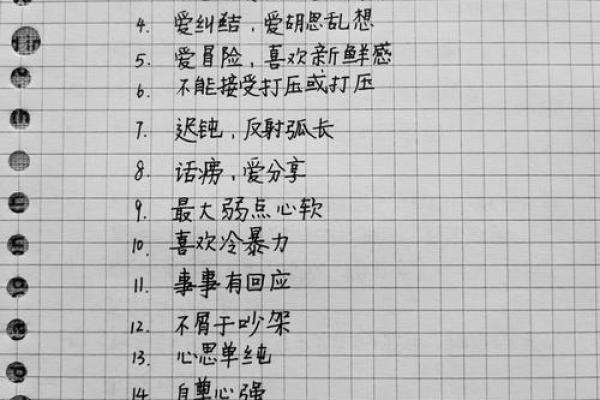 4. 爱纠结，爱胡思乱想
5. 爱冒险，喜欢新鲜感
6. 不能接受打压或打压
7. 迟钝，反射弧长
8. 话痨，爱分享
9. 最大弱点心软
10. 喜欢冷暴力
11. 事事有回应
12. 不屑于吵架
13. 心思单纯
14 自尊心强